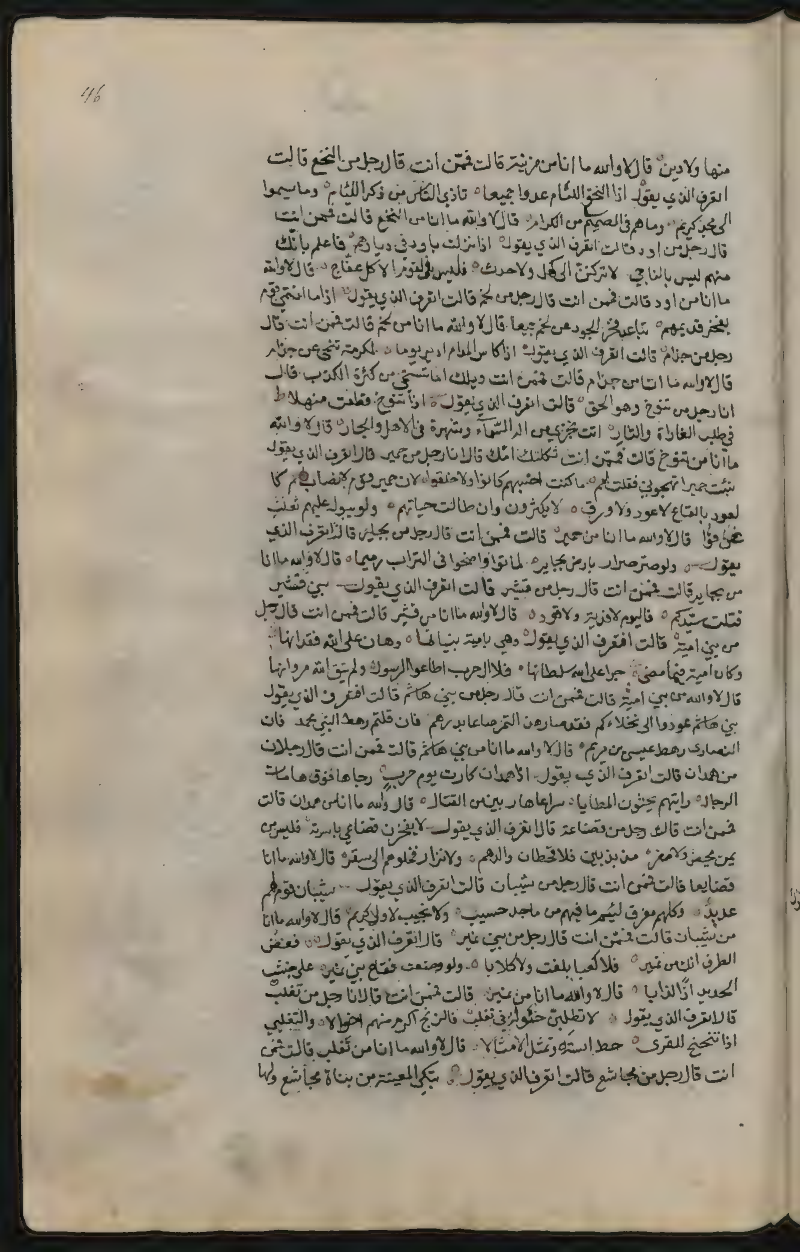 46
منها ولادين قال لا والله ما انا من مزنية قالت فمن انت قال رجل من النخع قالت
اتعرف الذي يقول اذا النخع اللئام عدوا جميعا تاذي الناس من ذكر اللئام وما يسموا
الى مجد كريم وما هم في الصميم من الكرام قال لا والله ما انا من النخع قالت فمن انت
قال رجل من اود قالت اتعرف الذي يقول اذا نزلت باود في ديارهم فاعلم بانك
منهم ليس بالناجي لا تركنن الى كهل ولا حدث فليس في القوم الا كل عفاج قال لا والله
ما انا من اود قالت فمن انت قال رجل من لخم قالت اتعرف الذي يقول اذا ما انتمى قوم
بفخر قديمهم تباعد فخر الجود عن لخم جميعا قال لا والله ما انا من لخم قالت فمن انت قال
رجل من جذام قالت اتعرف الذي يقول اذا كاس المدام ادير يوما لمكرمة تنحى عن جذام
قال لا والله ما انا من جذام قالت فمن انت ويلك اما تستحي من كثرة الكذب قال
انا رجل من تنوخ وهو الحق قالت اتعرف الذي يقول اذا تنوخ قطعت منهلا
في طلب الغاراة والثار اتت بخزي من اله السماء وشهرة في الاهل والجار قال لا والله
ما انا من تنوخ قالت فمن انت ثكلتك امك قال انا رجل من حمير قال اتعرف الذي يقول
نبئت حميرا تهجوني فقلت لهم ما كنت احسبهم كانوا ولا خلقوا لان حمير قوم لا نصاب لهم كا
لعود بالقاع لا عود ولا ورق لا يكثرون وان طالت حياتهم ولو يبول عليهم ثعلب
غرقوا قال لا والله ما انا من حمير قالت فمن انت قال رجل من بجايلة قال اتعرف الذي
يقول ولو صر صرار بارض بجاير لماتوا واضحوا في التراب رميما قال لا والله ما انا
من بجاير قالت فمن انت قال رجل من قشير قالت اتعرف الذي يقول بني قشير
قتلت سيدكم فاليوم لا فدية ولا قود قال لا والله ما انا من قشير قالت فمن انت قال رجل
من بني امية قالت افتعرف الذي يقول وهي بامية بنيانها وهان على الله فقدانها
وكان امية فيما مضى جرا على الله سلطانها فلا ال حرب اطاعوا الرسول ولم يتق الله مروانها
قال لا والله من بني امية قالت فمن انت قال رجل من بني هاشم قالت افتعرف الذي يقول
بني هاشم عودوا الى نخلاتكم فقد صار هن التمر صاعا بدرهم فان قلتم رهط النبي محمد فان
النصارى رهط عيسى بن مريم قال لا والله ما انا من بني هاشم قالت فمن انت قال رجل ان
من همدان قالت اتعرف الذي يقول اذا همدان كارت يوم حرب رحاها فوق هامات
الرجال رايتهم يحثون المطايا سراعا هاربين من القتال قال والله ما انا من همدان قالت
فمن انت قال رجل من قضاعة قال اتعرف الذي يقول لا يفخرن قضاعي باسرته فليس من
يمن محض ولا مضر مذبذبين فلا قحطان والدهم ولا نزار فخلوهم الى سقر قال لا والله ما انا
قضاعيا قالت فمن انت قال رجل من شيبان قالت اتعرف الذي يقول شيبان قوم لهم
عديد وكلهم معرق لئيم ما فيهم من ماجد حسيب ولا نجيب ولا كريم قال لا والله ما انا
من شيبان قالت فمن انت قال رجل من بني نمير قال اتعرف الذي يقول فغض
الطرف انك من نمير فلا كعبا بلغت ولا كلابا ولو وضعت فقاح بني نمير على خبث
الحديد اذا لذابا قال لا والله ما انا من نمير قالت فمن انت قال انا رجل من تغلب
قال اتعرف الذي يقول لا تطلبن خئولة في تغلب فالزنج اكرم منهم اخوالا والتغلبي
اذا تنحنح للقرى حك استه وتمثل الامثالا قال لا والله ما انا من تغلب قالت فمن
انت قال رجل من مجاشع قالت اتعرف الذي يقول تبكي المغيبة من بناة مجاشع ولها